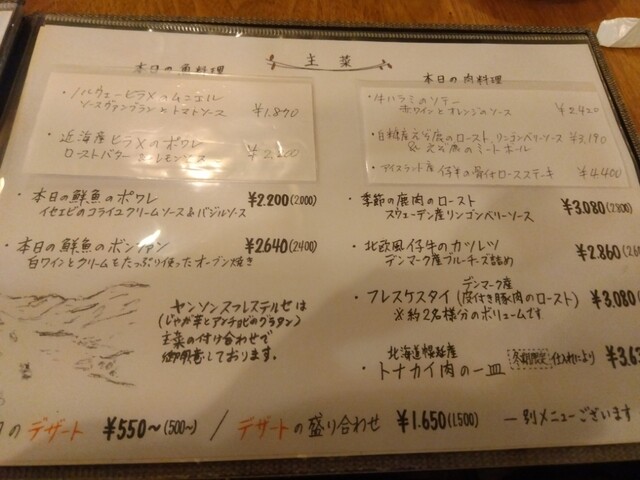 主菜
本日の魚料理
・ノルウェーヒラメのムニエル
ソースヴァンブランとトマトソース ¥1.870
・近海産ヒラメのポワレ
ローストバター &レモンソース ¥2,200
・本日の鮮魚のポワレ ¥2.200(2000)
イセエビのコライユクリームソース&バジルソース
・本日の鮮魚のボンファン ¥2640(2400)
白ワインとクリームをたっぷり使ったオーブン焼き
ヤンソンスフレステルセは
(じゃが芋とアンチョビのグラタン)
主菜の付け合わせで
御用意しております。
本日の肉料理
・牛ハラミのソテー
赤ワインとオレンジのソース ¥2,420
・白糠産えぞ鹿のロースト、リンゴンベリーソース ¥3,190
& えぞ鹿のミートボール
・アイスランド産 仔羊の骨付ロースステーキ ¥4,400
・季節の鹿肉のロースト ¥3.080(2800)
スウェーデン産リンゴンベリーソース
・北欧風仔牛のカツレツ ¥2.860
デンマーク産ブルーチーズ詰め
デンマーク産
・フレスケスタイ(皮付き豚肉のロースト) ¥3.080
※約2名様分のボリュームです
北海道幌延産 冬期限定 仕入れにより
・トナカイ肉の一皿
のデザート ¥550~(500~) / デザートの盛り合わせ ¥1.650(1.500) ―別メニューございます